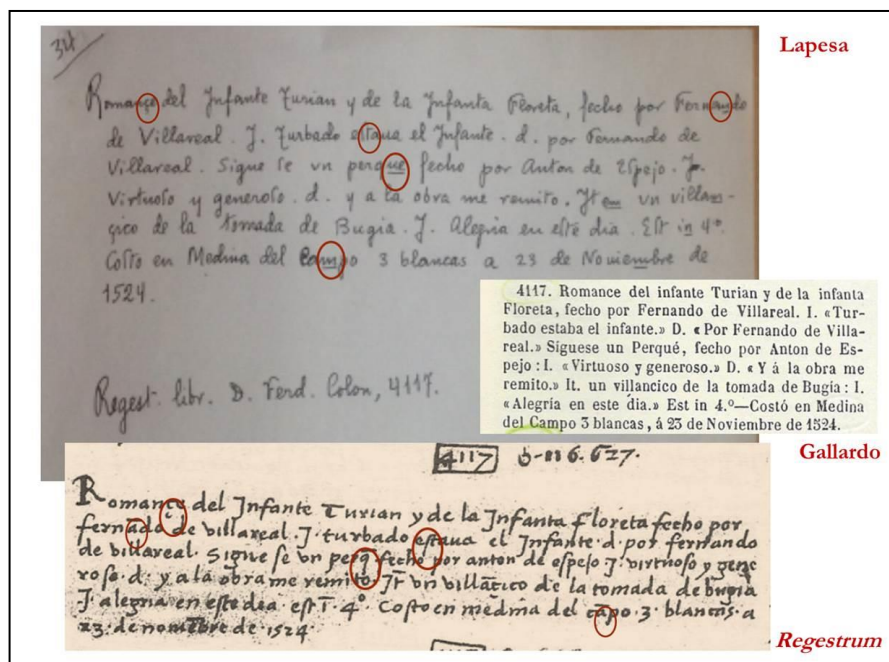 Lapesa
34
Romançe del Infante Turian y de la Infanta Floreta, fecho por Fernando
de Villareal. J. Turbado estaua el Infante. d. por Fernando de
Villareal. Sigue se vn perque fecho por Anton de Espejo. J.
Virtuoso y generoso. d. y a la obra me remito. Jtem vn villan-
çico de la tomada de Bugia. J. Alegria en este dia. Est in 4º.
Costo en Medina del Campo 3 blancas a 23 de Nouiembre de
1524.
Regest. libr. D. Ferd. Colon, 4117.
4117. Romance del infante Turian y de la infanta
Floreta, fecho por Fernando de Villareal. I. «Tur-
bado estaba el infante.» D. «Por Fernando de Villa-
real.» Síguese un Perqué, fecho por Anton de Es-
pejo: I. «Virtuoso y generoso.» D. «Y á la obra me
remito.» It. un villancico de la tomada de Bugía: I.
«Alegría en este dia.» Est in 4.º—Costó en Medina
del Campo 3 blancas, á 23 de Noviembre de 1524.
Gallardo
4117
Romançe del Jnfante Turian y de la Jnfanta floreta fecho por
fernãdo de villareal. J. turbado estaua el Jnfante. d. por fernando
de villareal. Sigue se vn perq̃ fecho por anton de espejo J. virtuoso y gene
roso. d. y a la obra me remito. Jt̃ vn villãçico de la tomada de bugia
J. alegria en este dia. est ĩ 4º. Costo en medina del cãpo. 3. blancas. a
23. de nouiẽbre de. 1524.
Regestrum